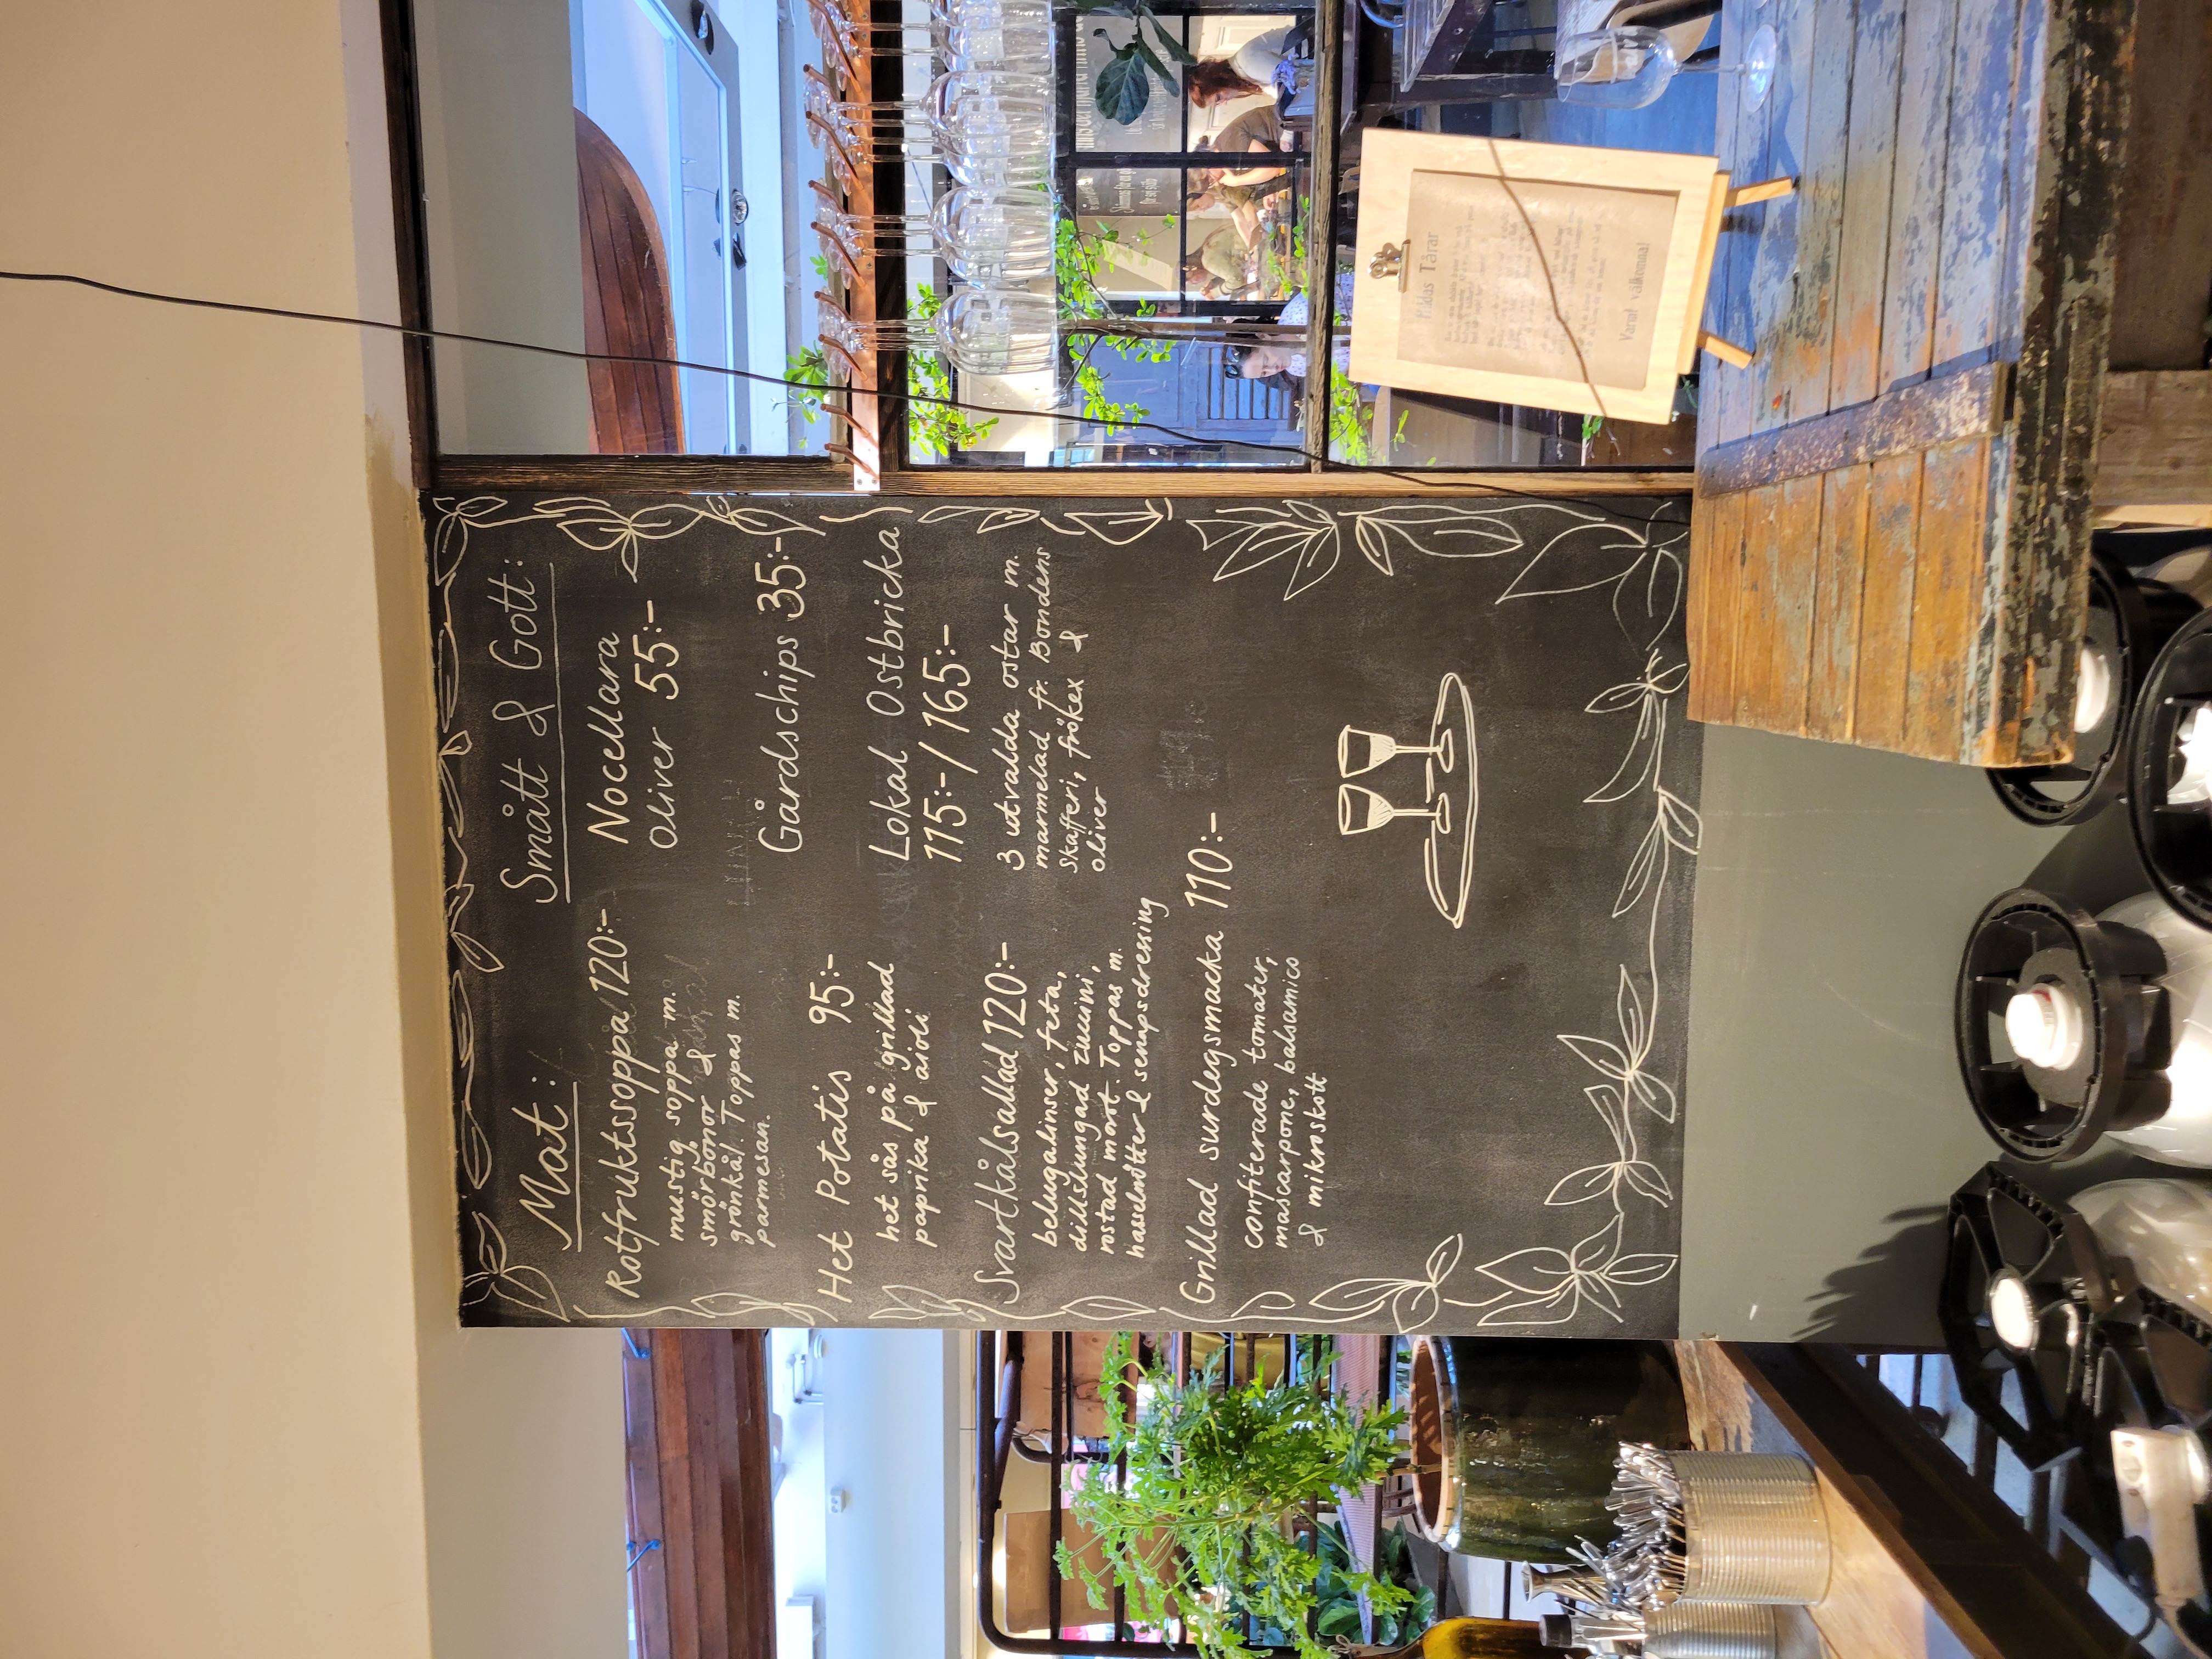 Mat:
Rotfruktssoppa 120:-
mustig soppa m.
smörbönor &
grönkål. Toppas m.
parmesan.
Het Potatis 95:-
het sås på grillad
paprika & aioli
Svartkålsallad 120:-
belugalinser, feta,
dillslungad zucini,
rostad morot. Toppas m.
hasselnötter & senapsdressing
Grillad surdegsmacka 110:-
confiterade tomater,
mascarpone, balsamico
& mikroskott
Smått & Gott:
Nocellara
Oliver 55:-
Gårdschips 35:-
Lokal Ostbricka
115:-/ 165:-
3 utvalda ostar m.
marmelad fr. Bondens
Skafferi, frökex &
oliver
Hildas Tårar
Varmt välkomna!